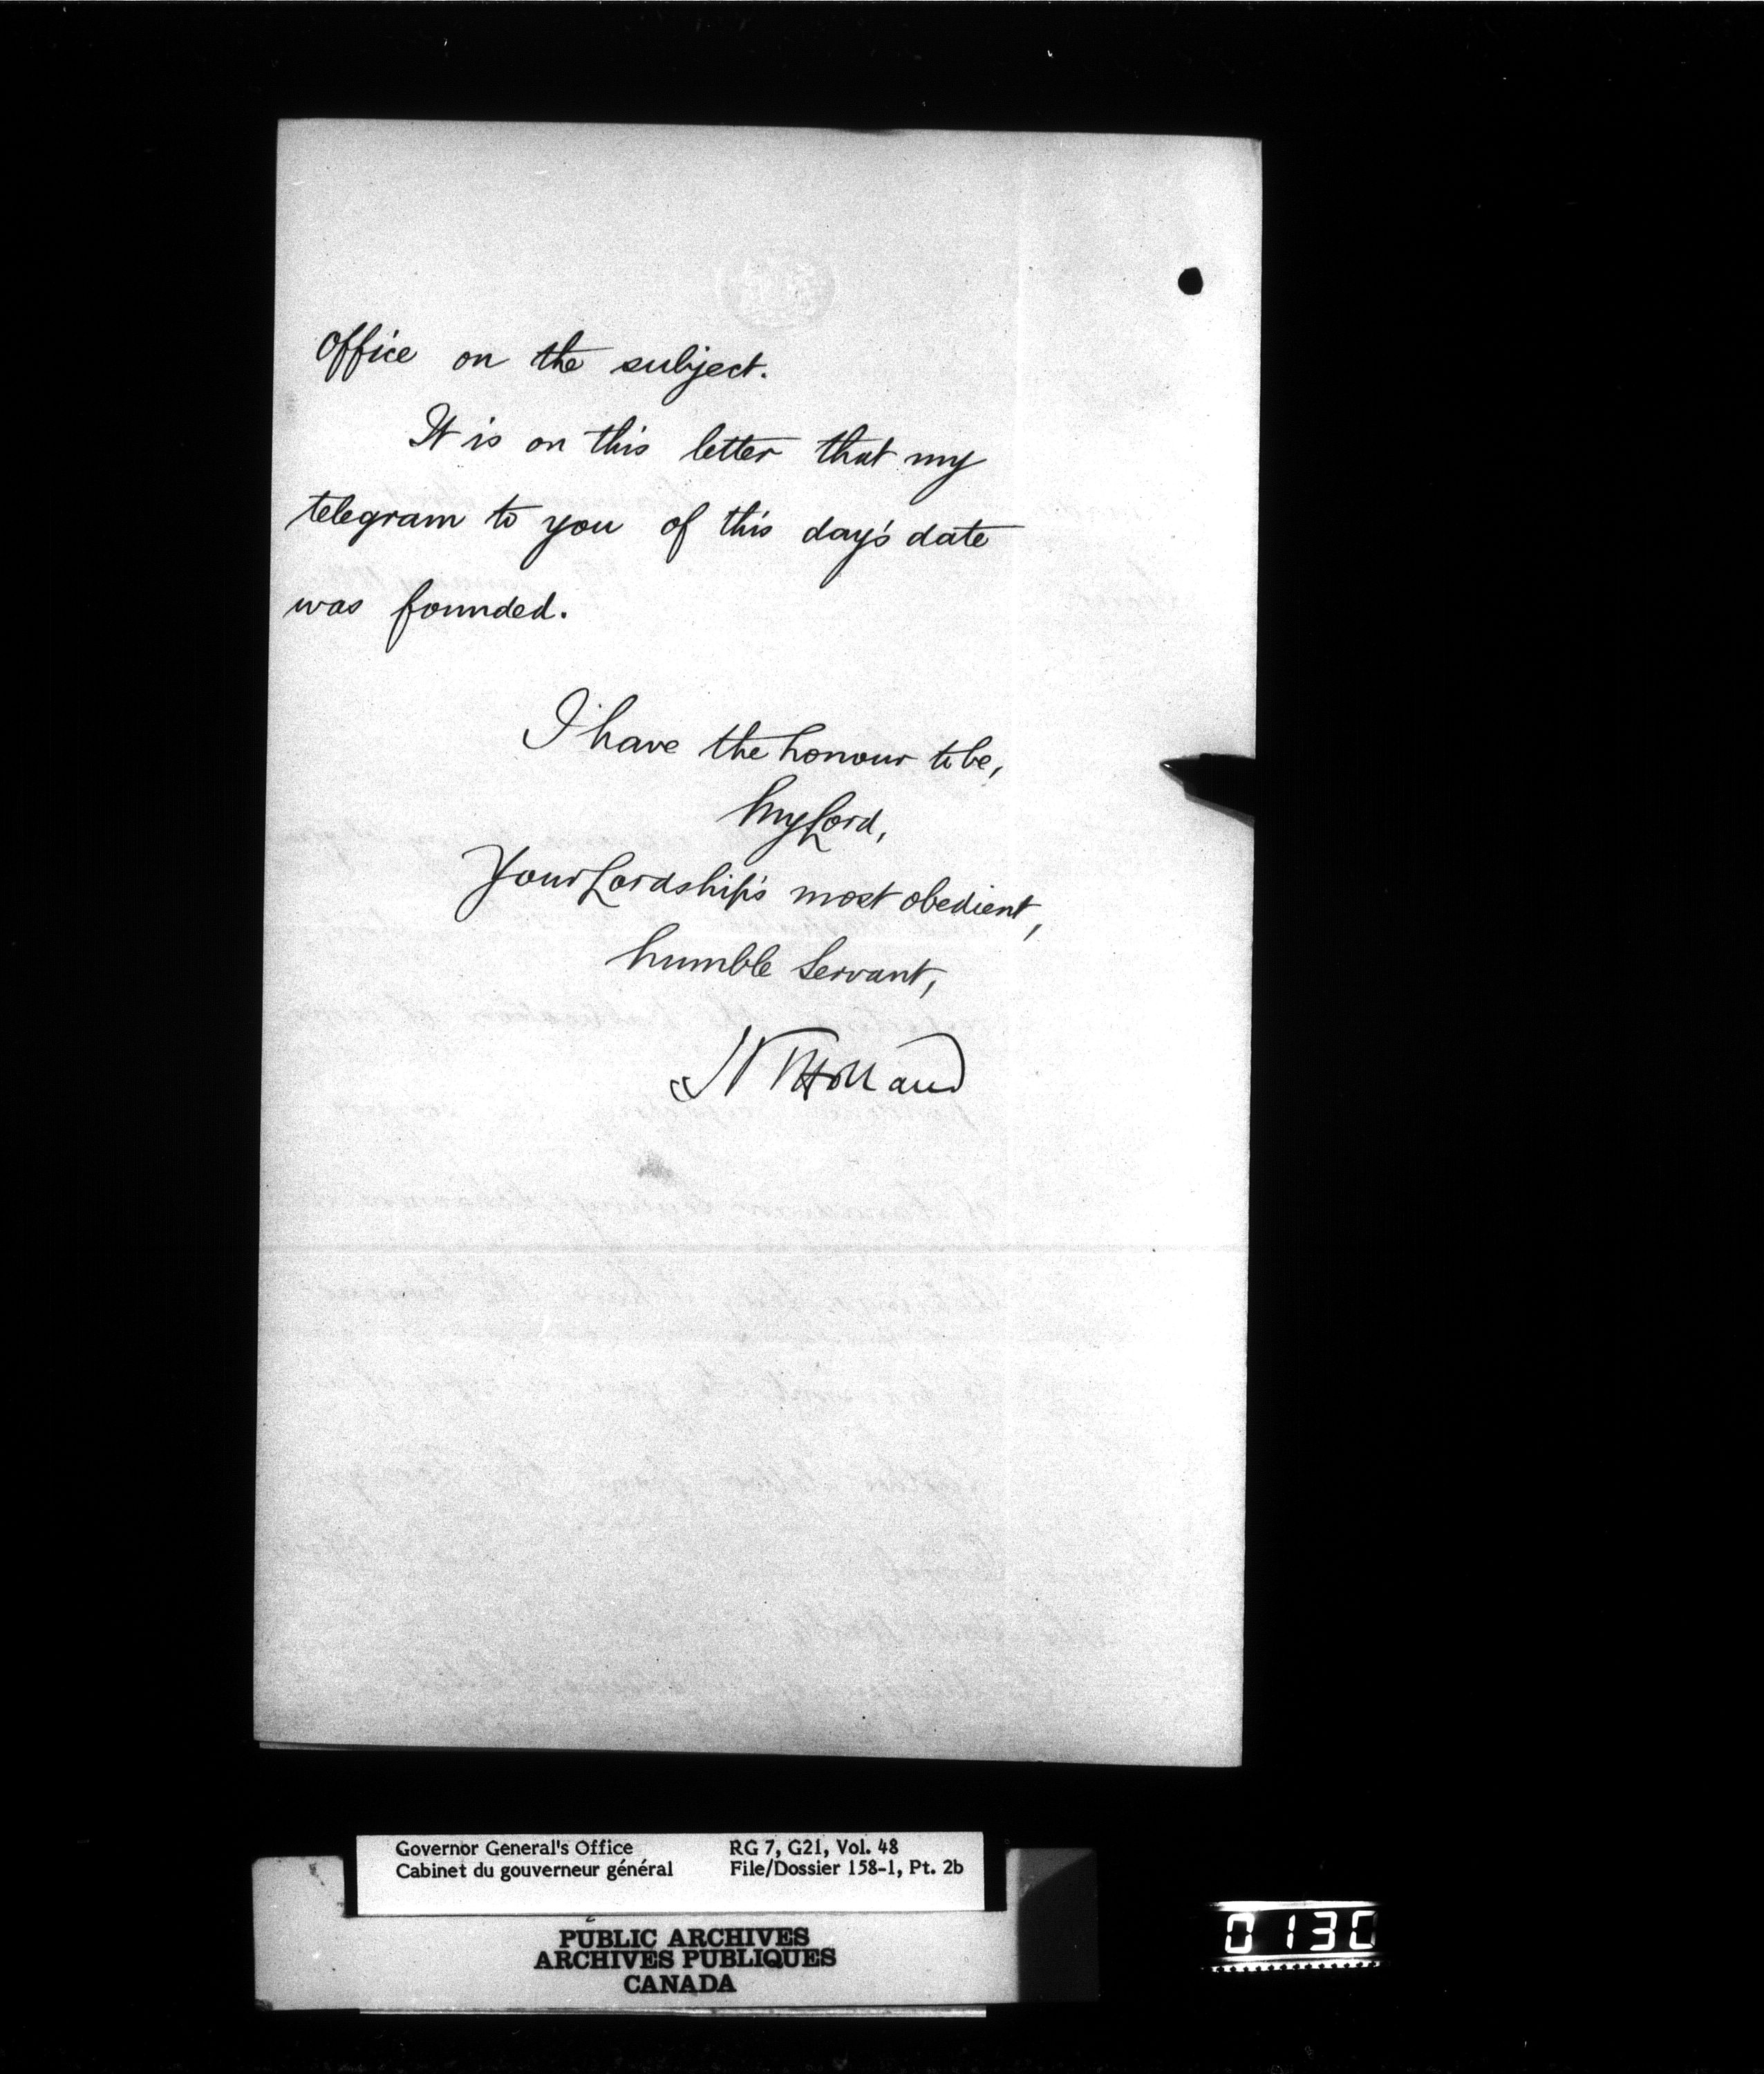 office on the subject.
It is on this letter that my
telegram to you of this day's date
was founded.
I have the honour to be,
My Lord,
Your Lordship's most obedient,
humble Servant,
H T Holland
Governor General's Office RG 7, G21, Vol. 48
Cabinet du gouverneur général File/Dossier 158-1, Pt. 2b
PUBLIC ARCHIVES
ARCHIVES PUBLIQUES
CANADA
0130